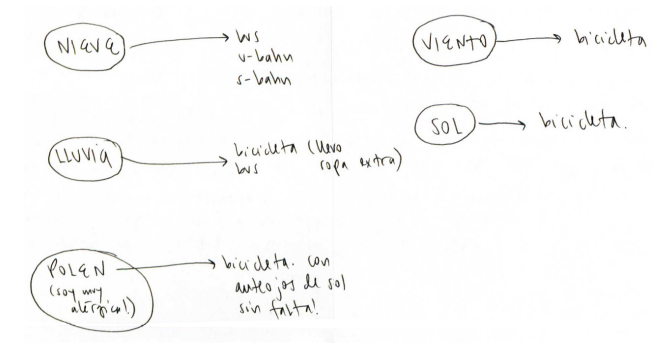 NIEVE
bus
u-bahn
s-bahn
LLUVIA
bicicleta (llevo
bus ropa extra)
POLEN
(soy muy
alérgica!)
bicicleta. con
anteojos de sol
sin falta!
VIENTO
bicicleta
SOL
bicicleta.